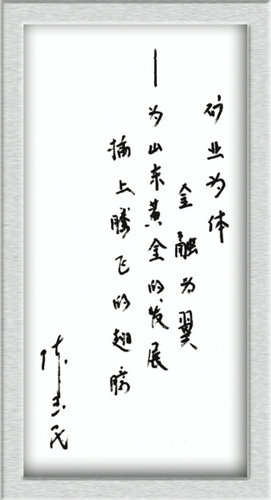 矿业为体
金融为翼
——为山东黄金的发展
插上腾飞的翅膀
陈志民